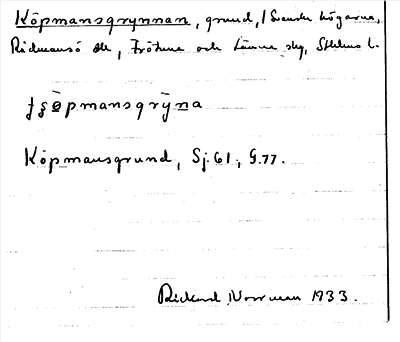 Köpmansgrynnan, grund, / Svenska högarna,
Rådmansö sn, Frötuna och Länna skg, Sthlms l.
Köpmansgrund, Sj. 61, G. 77.
Rickard Norrman 1933.